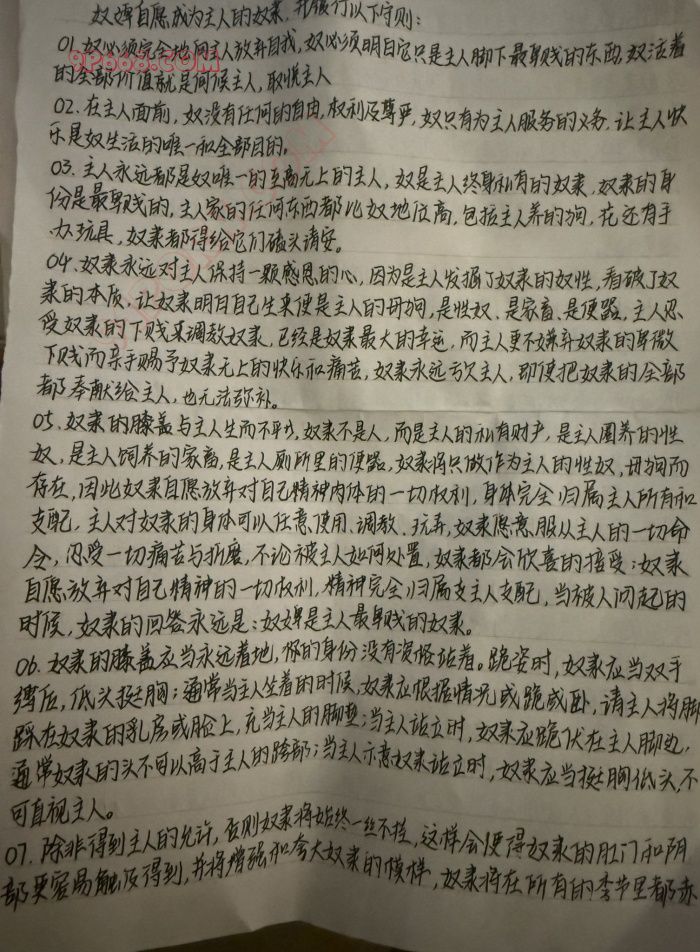 奴婢自愿成为主人的奴隶,并履行以下守则:
01.奴必须完全地向主人放弃自我,奴必须明白它只是主人脚下最卑贱的东西,奴活着
的全部价值就是伺候主人,取悦主人
02.在主人面前,奴没有任何的自由,权利及尊严,奴只有为主人服务的义务,让主人快
乐是奴生活的唯一和全部目的。
03.主人永远都是奴唯一的至高无上的主人,奴是主人终身私有的奴隶,奴隶的身
份是最卑贱的,主人家的任何东西都比奴地位高,包括主人养的狗,花还有手
办玩具,奴隶都得给它们磕头请安。
04.奴隶永远对主人保持一颗感恩的心,因为是主人发掘了奴隶的奴性,看破了奴
隶的本质,让奴隶明白自己生来便是主人的母狗,是性奴、是家畜、是便器,主人忍
受奴隶的下贱来调教奴隶,已经是奴隶最大的幸运,而主人更不嫌弃奴隶的卑微
下贱而亲手赐予奴隶无上的快乐和痛苦,奴隶永远亏欠主人,即便把奴隶的全部
都奉献给主人,也无法弥补。
05.奴隶的膝盖与主人生而不平,奴隶不是人,而是主人的私有财产,是主人圈养的性
奴,是主人饲养的家畜,是主人厕所里的便器,奴隶将只做作为主人的性奴,母狗而
存在,因此奴隶自愿放弃对自己精神肉体的一切权利,身体完全归属主人所有和
支配,主人对奴隶的身体可以任意使用、调教、玩弄,奴隶愿意服从主人的一切命
令,忍受一切痛苦与折磨,不论被主人如何处置,奴隶都会欣喜的接受;奴隶
自愿放弃对自己精神的一切权利,精神完全归属主人支配,当被人问起的
时候,奴隶的回答永远是:奴婢是主人最卑贱的奴隶。
06.奴隶的膝盖应当永远着地,你的身份没有资格站着。跪姿时,奴隶应当双手
缚后,低头挺胸;通常当主人坐着的时候,奴隶应根据情况或跪或卧,请主人将脚
踩在奴隶的乳房或脸上,充当主人的脚垫;当主人站立时,奴隶应跪伏在主人脚边,
通常奴隶的头不可以高于主人的跨部;当主人示意奴隶站立时,奴隶应当挺胸低头,不
可直视主人。
07.除非得到主人的允许,否则奴隶将始终一丝不挂,这样会使得奴隶的肛门和阴
部更容易触及得到,并将增强和夸大奴隶的模样,奴隶将在所有的季节里都赤